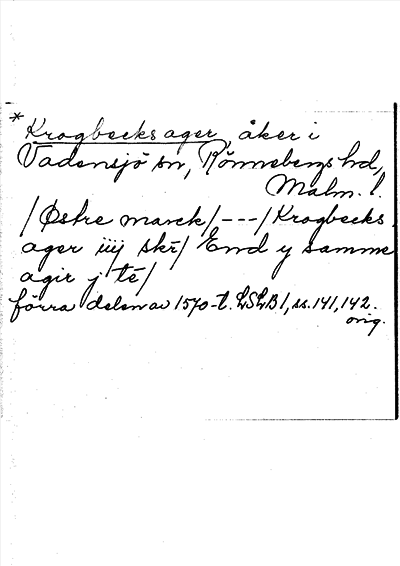 *Krogbecks ager, åker i
Vadensjö sn, Rönnebergs hd,
Malm. l.
/Østre marck/---/Krogbecks
ager iiij skr̄/ End y samme
agir j tē/
förra delen av 1570-t. LSLB I, ss. 141, 142.
orig.